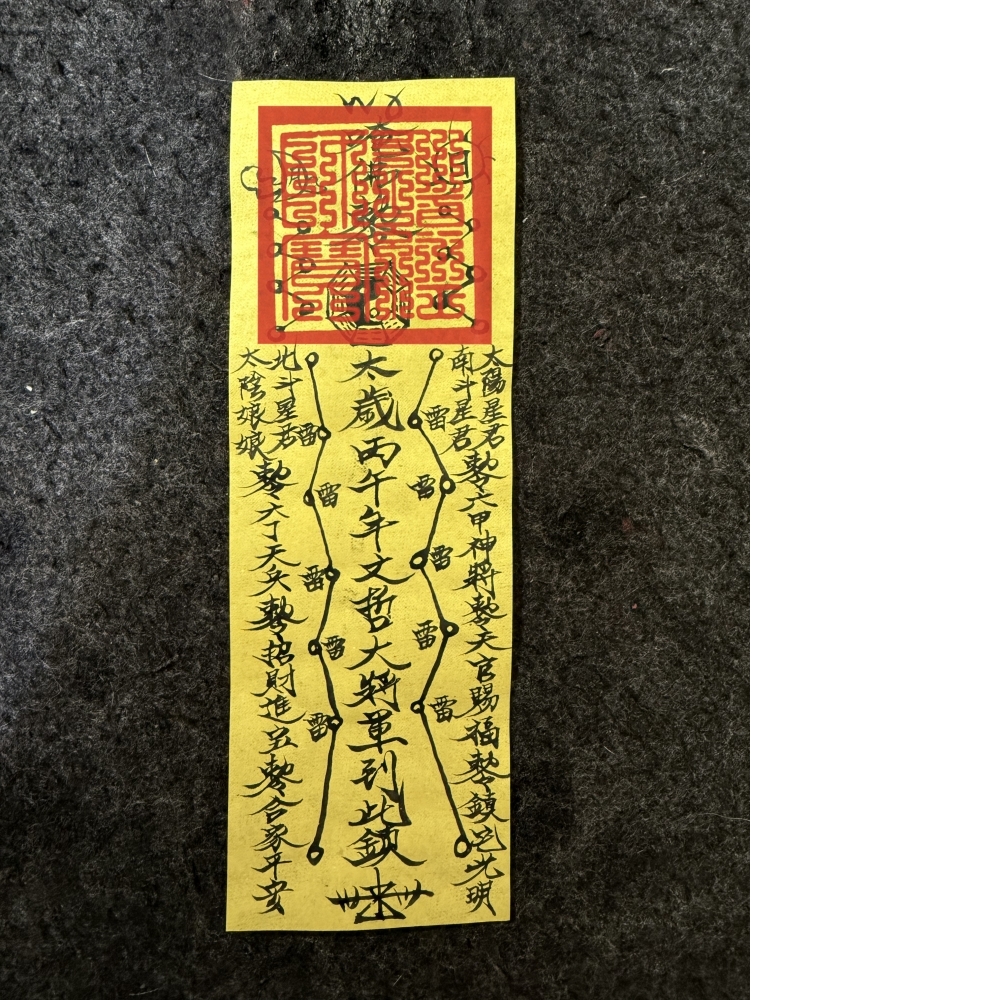 太陽星君
南斗星君
勅令六甲神將勅令天官賜福勅令鎮宅光明
雷
雷
雷
雷
雷
太歲丙午年文哲大將軍到此鎮
雷
雷
雷
雷
雷
北斗星君
太陰娘娘
勅令六丁天兵勅令招財進宝勅令合家平安